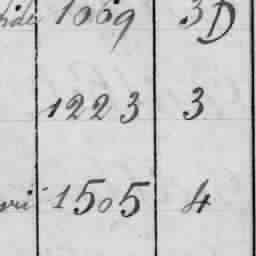 1069 3D
1223 3
1505 4